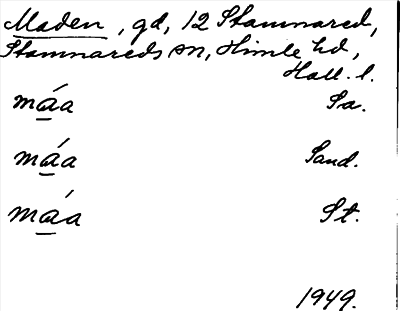 Maden, gd, 12 Stamnared,
Stamnareds sn, Himle hd,
Hall. l.
má̱a Sa.
má̱a Sand.
má̱a St.
1949.